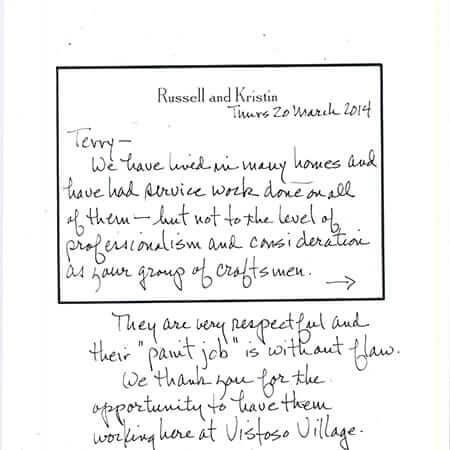 Russell and Kristin
Thurs 20 March 2014
Terry—
We have lived in many homes and
have had service work done on all
of them — but not to the level of
professionalism and consideration
as your group of craftsmen.
→
They are very respectful and
their "paint job" is without flaw.
We thank you for the
opportunity to have them
working here at Vistoso Village.